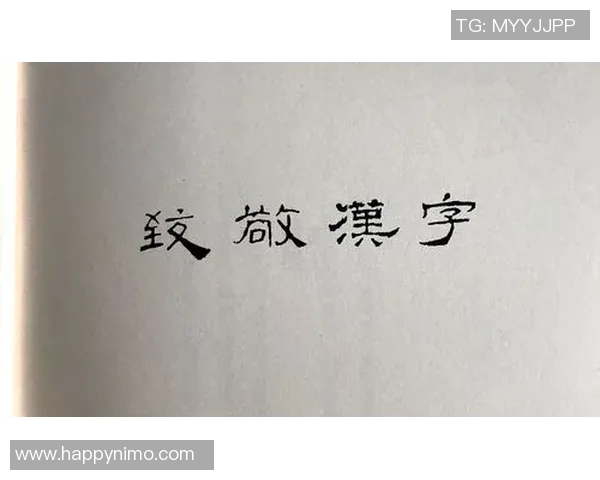 TG: MYYJJPP
致敬漢字
www.happynimo.com